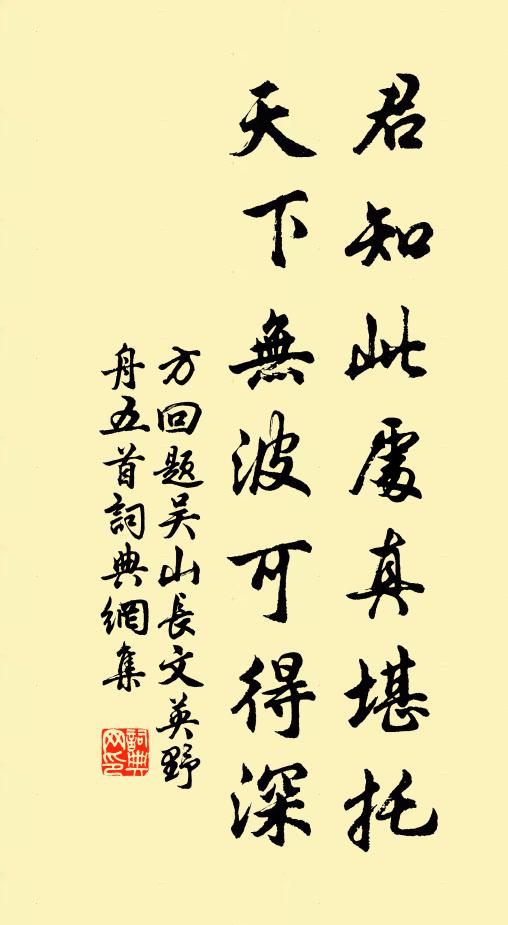 君知此處真堪托
天下無波可得深
方回題吴山長文英野
舟五首詞典網集
詞典
网印